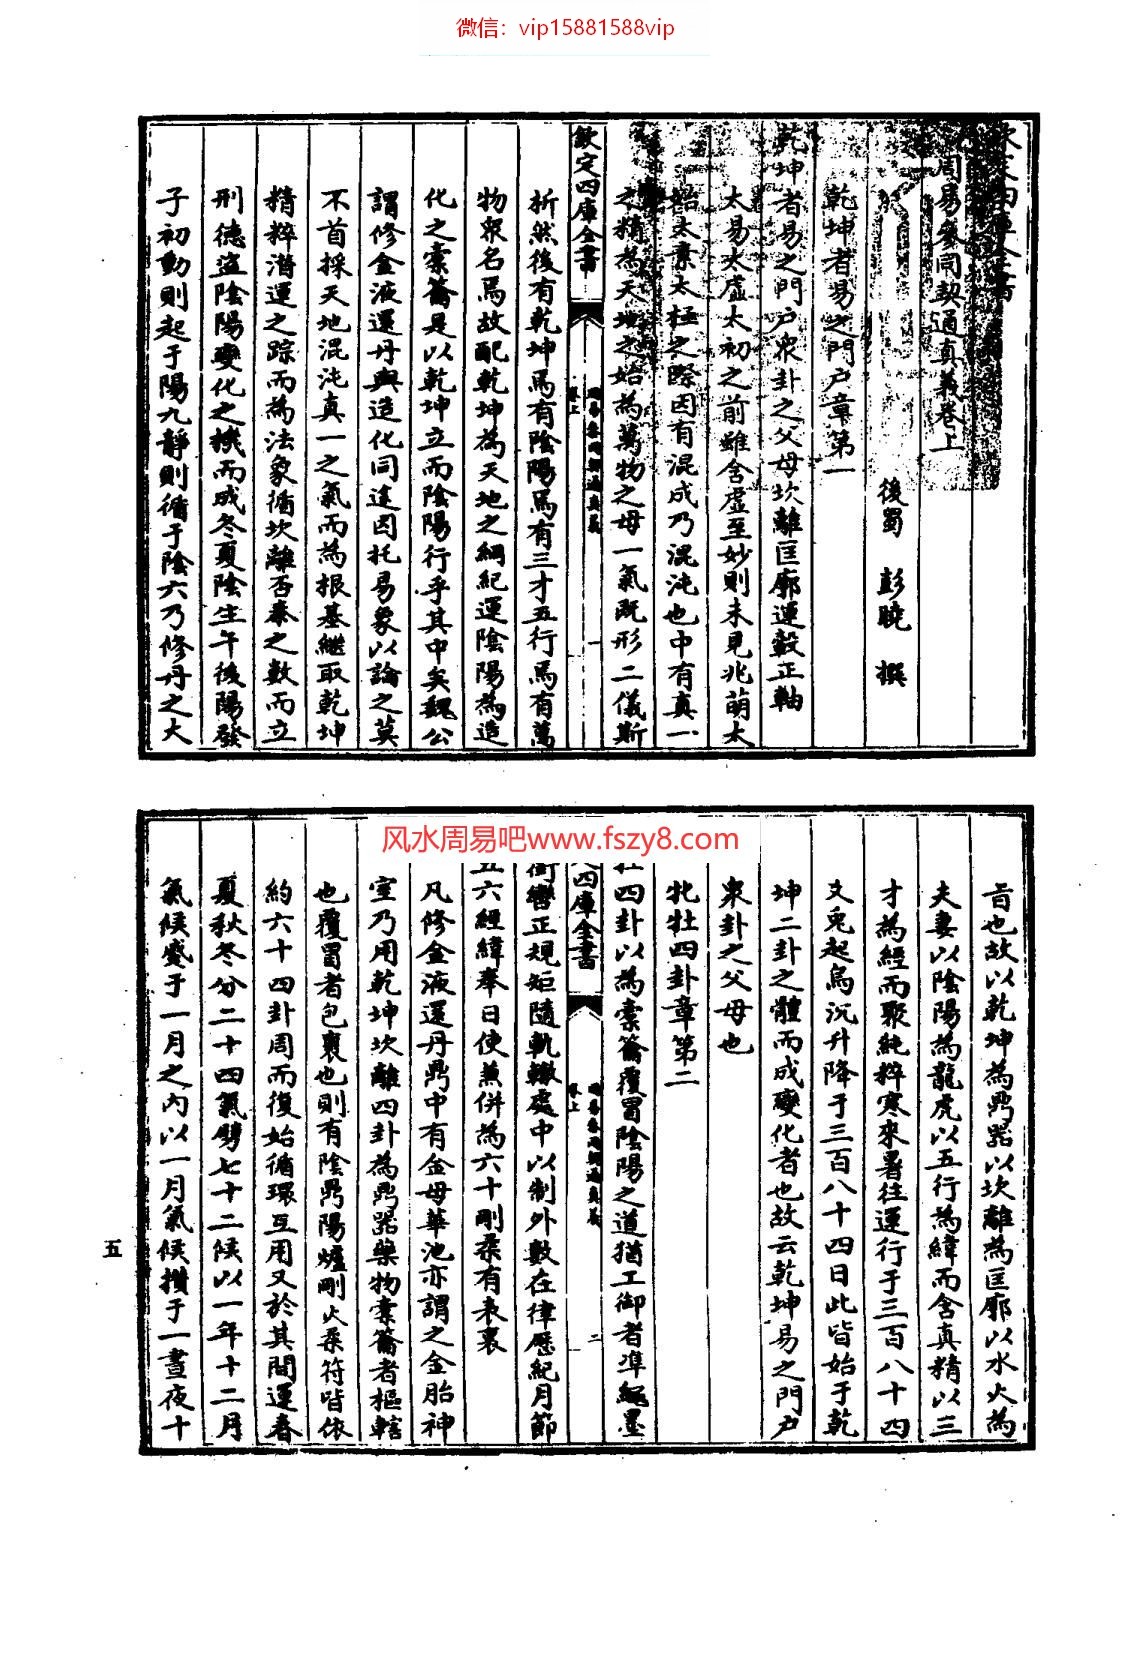 微信：vip15881588vip
欽定四庫全書
周易參同契通真義卷上
後蜀 彭曉 撰
乾坤者易之門户章第一
乾坤者易之門户衆卦之父母坎離匡廓運轂正軸
太易太虚太初之前雖含虚至妙則未見兆萌太
始太素太極之際因有混成乃混沌也中有真一
之精為天地之始為萬物之母一氣既形二儀斯
欽定四庫全書
周易參同契通真義
卷上
一
析然後有乾坤焉有陰陽焉有三才五行焉有萬
物衆名焉故配乾坤為天地之綱紀運陰陽為造
化之橐籥是以乾坤立而陰陽行乎其中矣魏公
謂修金液還丹與造化同途因托易象以論之莫
不首採天地混沌真一之氣而為根基繼取乾坤
精粹潛運之踪而為法象循坎離否泰之數而立
刑德盜陰陽變化之機而成冬夏陰生午後陽發
子初動則起于陽九靜則循于陰六乃修丹之大
旨也故以乾坤為鼎器以坎離為匡廓以水火為
夫妻以陰陽為龍虎以五行為緯而含真精以三
才為經而聚純粹寒來暑往運行于三百八十四
爻兎起烏沉升降于三百八十四日此皆始于乾
坤二卦之體而成變化者也故云乾坤易之門户
衆卦之父母也
牝牡四卦章第二
牡四卦以為橐籥覆冒陰陽之道猶工御者凖繩墨
四庫全書
周易參同契通真義
卷上
二
銜轡正規矩隨軌轍處中以制外數在律歷紀月節
五六經緯奉日使兼併為六十剛柔有表裏
凡修金液還丹鼎中有金母華池亦謂之金胎神
室乃用乾坤坎離四卦為鼎器藥物橐籥者樞轄
也覆冒者包裹也則有陰鼎陽爐剛火柔符皆依
約六十四卦周而復始循環互用又於其間運春
夏秋冬分二十四氣劈七十二候以一年十二月
氣候蹙于一月之内以一月氣候攢于一晝夜十
風水周易吧www.fszy8.com
五